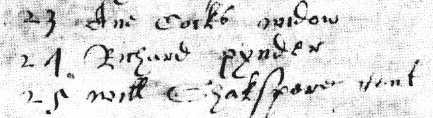 23 Ane Cocks widow
24 Richard pynder
25 Will Shakspere gent